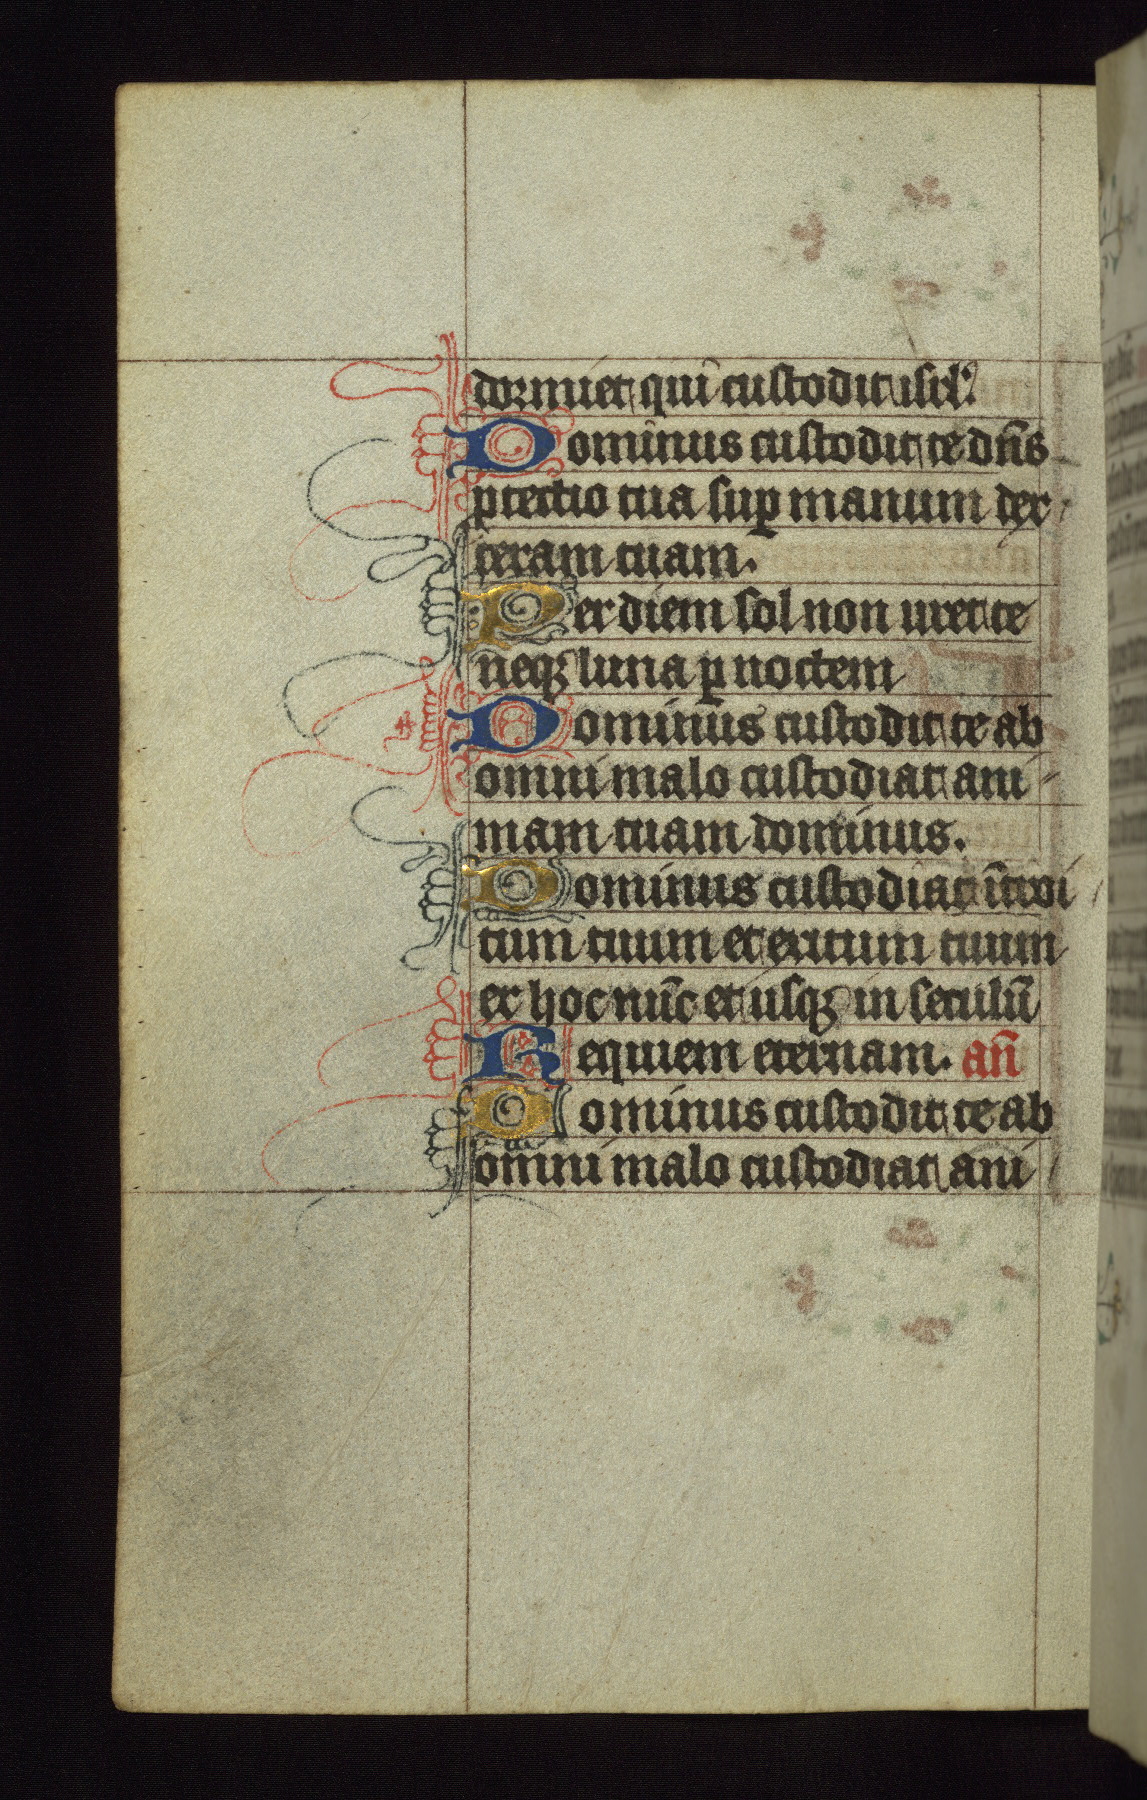 dormiet qui custodit isrl'.
Dominus custodit te dn̄s
ꝓtectio tua suꝑ manum dex
teram tuam.
Per diem sol non uret te
neqꝫ luna ꝑ noctem
Dominus custodit te ab
omni malo custodiat ani-
mam tuam dominus.
Dominus custodiat ītroi
tum tuum et exitum tuum
ex hoc nūc et usqꝫ in seculū
Requiem eternam. an̄
Dominus custodit te ab
omni malo custodiat ani